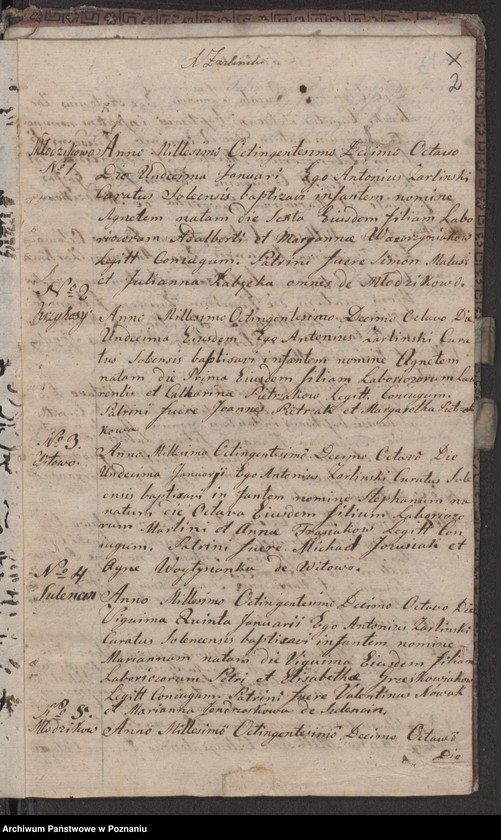 A Zarlinski
2
Młodzikowo Anno Millesimo Octingentesimo Decimo Octavo
No 1. Die Undecima Januari Ego Antonius Zarlinski
Curatus Solecensis baptizavi infantem nomine
Agnetem natam die Sexta Eiusdem filiam Labo
riosorum Adalberti et Mariannae Wawrzyniakow
Legitt Coniugum. Patrini fuere Simon Matusz
et Julianna omnes de Młodzikowo.
No 2
Anno Millesimo Octingentesimo Decimo Octavo Die
Undecima Eiusdem Ego Antonius Zarlinski Cura
tus Solensis baptisavi infantem nomine Agnetem
natam die Prima Eiusdem filiam Laboriosorum Lau
rentii et Catharina Pietrzakow Legitt. Coniugum.
Patrini fuere Joannes Pietrzak et Margaretha Pietrza
kowa
No 3.
Witowo. Anno Millesimo Octingentesimo Decimo Octavo Die
Undecima Januarii Ego Antonius Zarlinski Curatus Sole
censis baptizavi infantem nomine Stephanum na
natum die Octava Eiusdem filium Laborioso
rum Martini et Anna Legitt Con
iugum. Patrini fuere Michael Jozwiak et
Agne de Witowo.
No 4
Sulencin Anno Millesimo Octingentesimo Decimo Octavo Die
Vigisima Quinta Januarii Ego Antonius Zarlinski
Curatus Solencensis baptizavi infantem nomine
Mariannam natam die Vigisima Eiusdem filiam
Laboriosorum Petri et Elisabethae Grzeskowiakow
Legitt Coniugum. Patrini fuere Valentinus Nowak
et Marianna Jendroskowa de Sulencin.
No 5.
Młodzikow Anno Millesimo Octingentesimo Decimo Octavo
Die
Archiwum Państwowe w Poznaniu